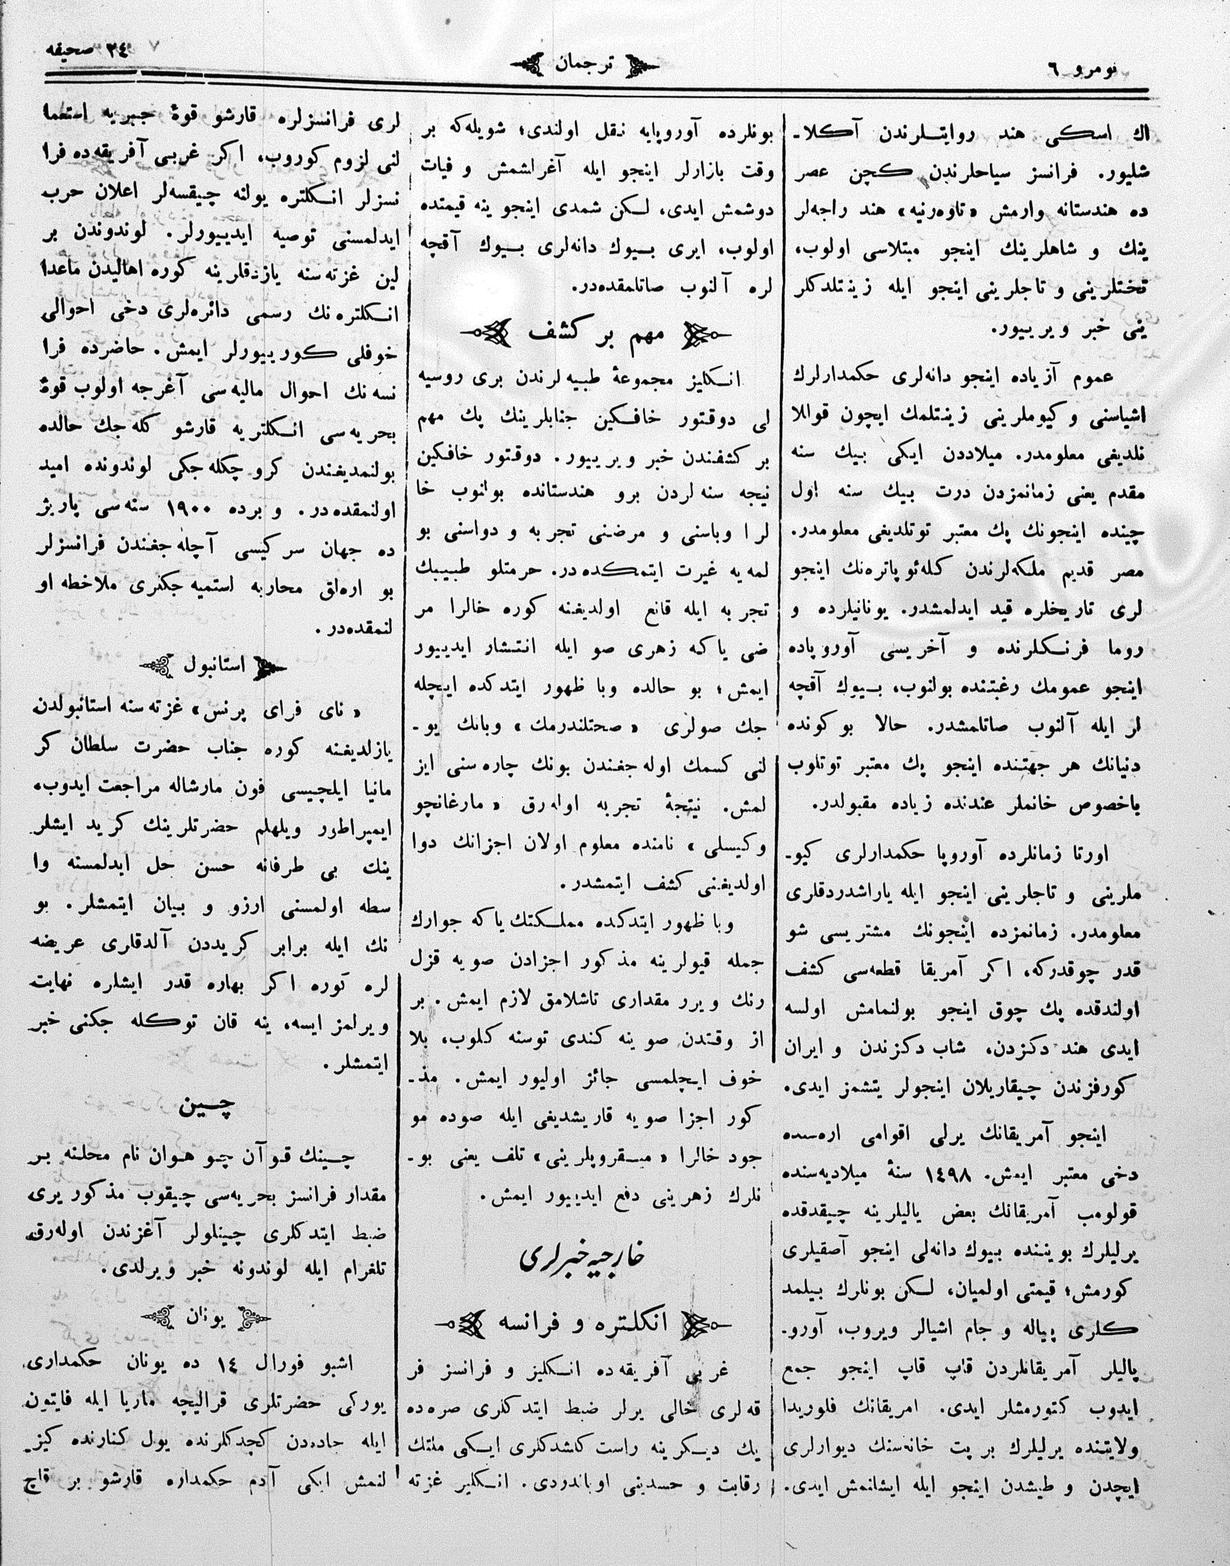 نومرو ٦
ترجمان
٢٤ صحیفه
اك اسكی هند روایتلرندن آكلا‌ـ
شلیور. فرانسز سیاحلرندن كچن عصر
ده هندستانه وارمش «تاوه‌رنیه» هند راجه‌لر
ینك و شاهلرینك اینجو مبتلاسی اولوب،
تختلرینی و تاجلرینی اینجو ایله زینتلدكلر
ینی خبر ویرییور.
عموم آزیاده اینجو دانه‌لری حكمدارلرك
اشیاسنی و كیوملرینی زینتلمك ایچون قوللا
نلدیغی معلومدر. میلاددن ایكی بیك سنه
مقدم یعنی زمانمزدن درت بیك سنه اول
چینده اینجونك پك معتبر توتلدیغی معلومدر.
مصر قدیم ملكه‌لرندن كله‌ئوپاتره‌نك اینجو
لری تاریخلره قید ایدلمشدر. یونانیلرده و
روما فرنكلرنده و آخریسی آوروپاده
اینجو عمومك رغبتنده بولنوب، بیوك آقچه
لر ایله آلنوب صاتلمشدر. حالا بوكونده
دنیانك هر جهتنده اینجو پك معتبر توتلوب
باخصوص خانملر عندنده زیاده مقبولدر.
اورتا زمانلرده آوروپا حكمدارلری كیو‌ـ
ملرینی و تاجلرینی اینجو ایله یاراشدردقلری
معلومدر. زمانمزده اینجونك مشتریسی شو
قدر چوقدركه، اكر آمریقا قطعه‌سی كشف
اولندقده پك چوق اینجو بولنمامش اولسه
ایدی هند دكزدن، شاب دكزندن و ایران
كورفزندن چیقاریلان اینجولر یتشمز ایدی.
اینجو آمریقانك یرلی اقوامی اره‌سنده
دخی معتبر ایمش. ١٤٩٨ سنهٔ میلادیه‌سنده
قولومب آمریقانك بعض یالیلرینه چیقدقده
یرلیلرك بویننده بیوك دانه‌لی اینجو آصقیلری
كورمش؛ قیمتی اولمیان، لكن بونلرك بیلمد
كلری پیاله و جام اشیالر ویروب، آورو‌ـ
پالیلر آمریقانلردن قاپ قاپ اینجو جمع
ایدوب كتورمشلر ایدی. امریقانك فلوریدا
ولایتنده یرلیلرك بر پت خانه‌سنك دیوارلری
ایچدن و طیشدن اینجو ایله ایشانمش ایدی.
بونلرده آوروپایه نقل اولندی؛ شویله‌كه بر
وقت بازارلر اینجو ایله آغرلشمش و فیات
دوشمش ایدی، لكن شمدی اینجو ینه قیمتده
اولوب، ایری بیوك دانه‌لری بیوك آقچه
لره آلنوب صاتلمقده‌در.
مهم بر كشف
انكلیز مجموعهٔ طبیه‌لرندن بری روسیه
لی دوقتور خافكین جنابلرینك پك مهم
بر كشفندن خبر ویرییور. دوقتور خافكین
نیجه سنه‌لردن برو هندستانده بولنوب خا
لرا وباسنی و مرضنی تجربه و دواسنی بو
لمه‌یه غیرت ایتمكده‌در. حرمتلو طبیبك
تجربه ایله قانع اولدیغنه كوره خالرا مر
ضی یاكه زهری صو ایله انتشار ایدییور
ایمش؛ بو حالده وبا ظهور ایتدكده ایچله
جك صولری «صحتلندرمك» وبانك یو‌ـ
لنی كسمك اوله‌جغندن بونك چاره‌سنی ایز
لمش. نتیجهٔ تجربه اوله‌رق «مارغانچو
وكیسلی» نامنده معلوم اولان اجزانك دوا
اولدیغنی كشف ایتمشدر.
وبا ظهور ایتدكده مملكتك یاكه جوارك
جمله قیولرینه مذكور اجزادن صویه قزل
رنك ویرر مقداری تاشلامق لازم ایمش. بر
از وقتدن صو ینه كندی توسنه كلوب، بلا
خوف ایچلمسی جائز اولیور ایمش. مذ‌ـ
كور اجزا صویه قاریشدیغی ایله صوده مو
جود خالرا «میقروپلرینی» تلف یعنی بو‌ـ
نلرك زهرینی دفع ایدییور ایمش.
خارجیه خبرلری
انكلتره و فرانسه
غربی آفریقه‌ده انكلیز و فرانسز فر
قه‌لری خالی یرلر ضبط ایتدكلری صره‌ده
یك دیكرینه راست كلشدكلری ایكی ملتك
رقابت و حسدینی اویاندردی. انكلیز غزته
لری فرانسزلره قارشو قوهٔ جبریه استعما
لنی لزوم كوروب، اكر غربی آفریقه‌ده فرا
نسزلر انكلتره یولنه چیقسه‌لر اعلان حرب
ایدلمسنی توصیه ایدییورلر. لوندوندن بر
لین غزته‌سنه یازدقلرینه كوره اهالیدن ماعدا
انكلتره‌نك رسمی دائره‌لری دخی احوالی
خوفلی كورییورلر ایمش. حاضرده فرا
نسه‌نك احوال مالیه‌سی آغرجه اولوب قوهٔ
بحریه‌سی انكلتریه قارشو كله‌جك حالده
بولنمدیغندن كرو چكله‌جكی لوندونده امید
اولنمقده‌در. و برده ١٩٠٠ سنه‌سی پاریژ
ده جهان سركیسی آچله‌جغندن فرانسزلر
بو اره‌لق محاربه استمیه‌جكلری ملاخظه او
لنمقده‌در.
استانبول
«نای فرای پرنس» غزته‌سنه استانبولدن
یازلدیغنه كوره جناب حضرت سلطان كر
مانیا ایلچیسی فون مارشاله مراجعت ایدوب،
ایمپراطور ویلهلم حضرتلرینك كرید ایشلر
ینك بی طرفانه حسن حل ایدلمسنه وا
سطه اولمسنی ارزو و بیان ایتمشلر. بو
نك ایله برابر كریددن آلدقلری عریضه
لره كوره اكر بهاره قدر ایشلره نهایت
ویرلمز ایسه، ینه قان توكله جكنی خبر
ایتمشلر.
چین
چینك قوآن چو هوان نام محلنه بر
مقدار فرانسز بحریه‌سی چیقوب مذكور یری
ضبط ایتدكلری چینلولر آغزندن اوله‌رق
تلغرام ایله لوندونه خبر ویرلدی.
یونان
اشبو فورال ١٤ ده یونان حكمداری
یوركی حضرتلری قرالیچه ماریا ایله فایتون
ایله جاده‌دن كچدكلرنده یول كنارنده كیز‌ـ
لنمش ایكی آدم حكمداره قارشو بر قاچ